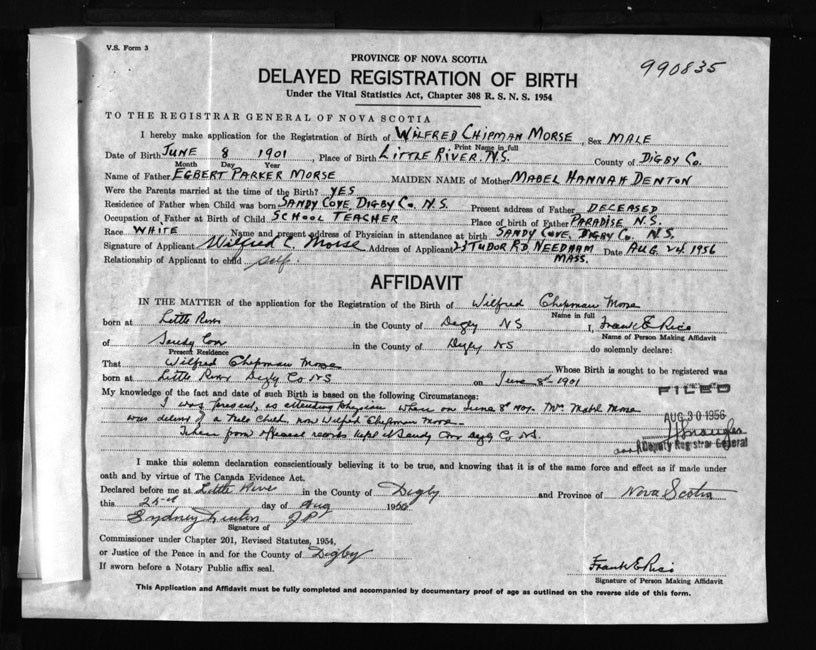 V.S. Form 3
PROVINCE OF NOVA SCOTIA
990835
DELAYED REGISTRATION OF BIRTH
Under the Vital Statistics Act, Chapter 308 R. S. N. S. 1954
TO THE REGISTRAR GENERAL OF NOVA SCOTIA
I hereby make application for the Registration of Birth of WILFRED CHIPMAN MORSE, Sex MALE
Print Name in full
Date of Birth JUNE 8 1901, Place of Birth LITTLE RIVER, N.S. County of DIGBY CO.
Month Day Year
Name of Father EGBERT PARKER MORSE MAIDEN NAME of Mother MABEL HANNAH DENTON
Were the Parents married at the time of the Birth? YES
Residence of Father when Child was born SANDY COVE, DIGBY CO. N.S. Present address of Father DECEASED
Occupation of Father at Birth of Child SCHOOL TEACHER Place of birth of Father PARADISE N.S.
Race WHITE Name and present address of Physician in attendance at birth SANDY COVE, DIGBY CO. N.S.
Signature of Applicant Wilfred C. Morse Address of Applicant 23 TUDOR RD NEEDHAM Date AUG. 24 1956
MASS.
Relationship of Applicant to child self.
AFFIDAVIT
IN THE MATTER of the application for the Registration of the Birth of Wilfred Chipman Morse
Name in full
born at Little River in the County of Digby NS I, Frank E Rice
Name of Person Making Affidavit
of Sandy Cove in the County of Digby NS do solemnly declare:
Present Residence
That Wilfred Chipman Morse Whose Birth is sought to be registered was
born at Little River Digby Co NS on June 8th 1901
FILED
My knowledge of the fact and date of such Birth is based on the following Circumstances:
I was present, as attending physician when on June 8th 1901. Mrs. Mabel Morse
AUG 30 1956
was delivered of a male child now Wilfred Chipman Morse
Taken from records kept at Sandy Cove Digby Co NS.
Deputy Registrar General
I make this solemn declaration conscientiously believing it to be true, and knowing that it is of the same force and effect as if made under
oath and by virtue of The Canada Evidence Act.
Declared before me at Little River in the County of Digby and Province of Nova Scotia
this 25th day of Aug 195
Sydney Denton JP
Signature of
Commissioner under Chapter 201, Revised Statutes, 1954,
or Justice of the Peace in and for the County of Digby
If sworn before a Notary Public affix seal.
Frank E Rice
Signature of Person Making Affidavit
This Application and Affidavit must be fully completed and accompanied by documentary proof of age as outlined on the reverse side of this form.